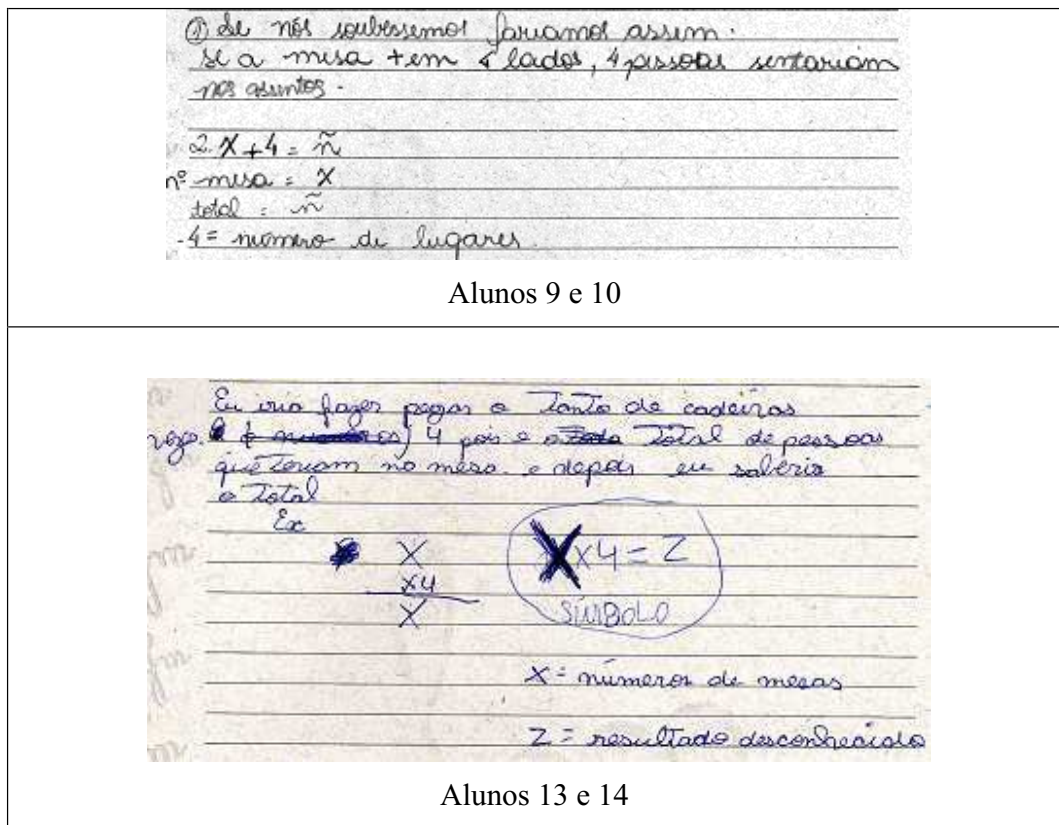 ① Se nós soubessemos fariamos assim.
se a mesa tem 4 lados, 4 pessoas sentariam
nos asuntos.
2. X + 4 = ñ
nº mesa = X
total = ñ
4 = número de lugares.
Alunos 9 e 10
Eu iria fazer pegar o Tanto de cadeiras
4 pois e o Total de pessoas
que teriam no mesa. e depois eu saberia
o Total
Ex
X X x4 = Z
x4
X SÍMBOLO
X = números de mesas
Z = resultado desconhecido
Alunos 13 e 14